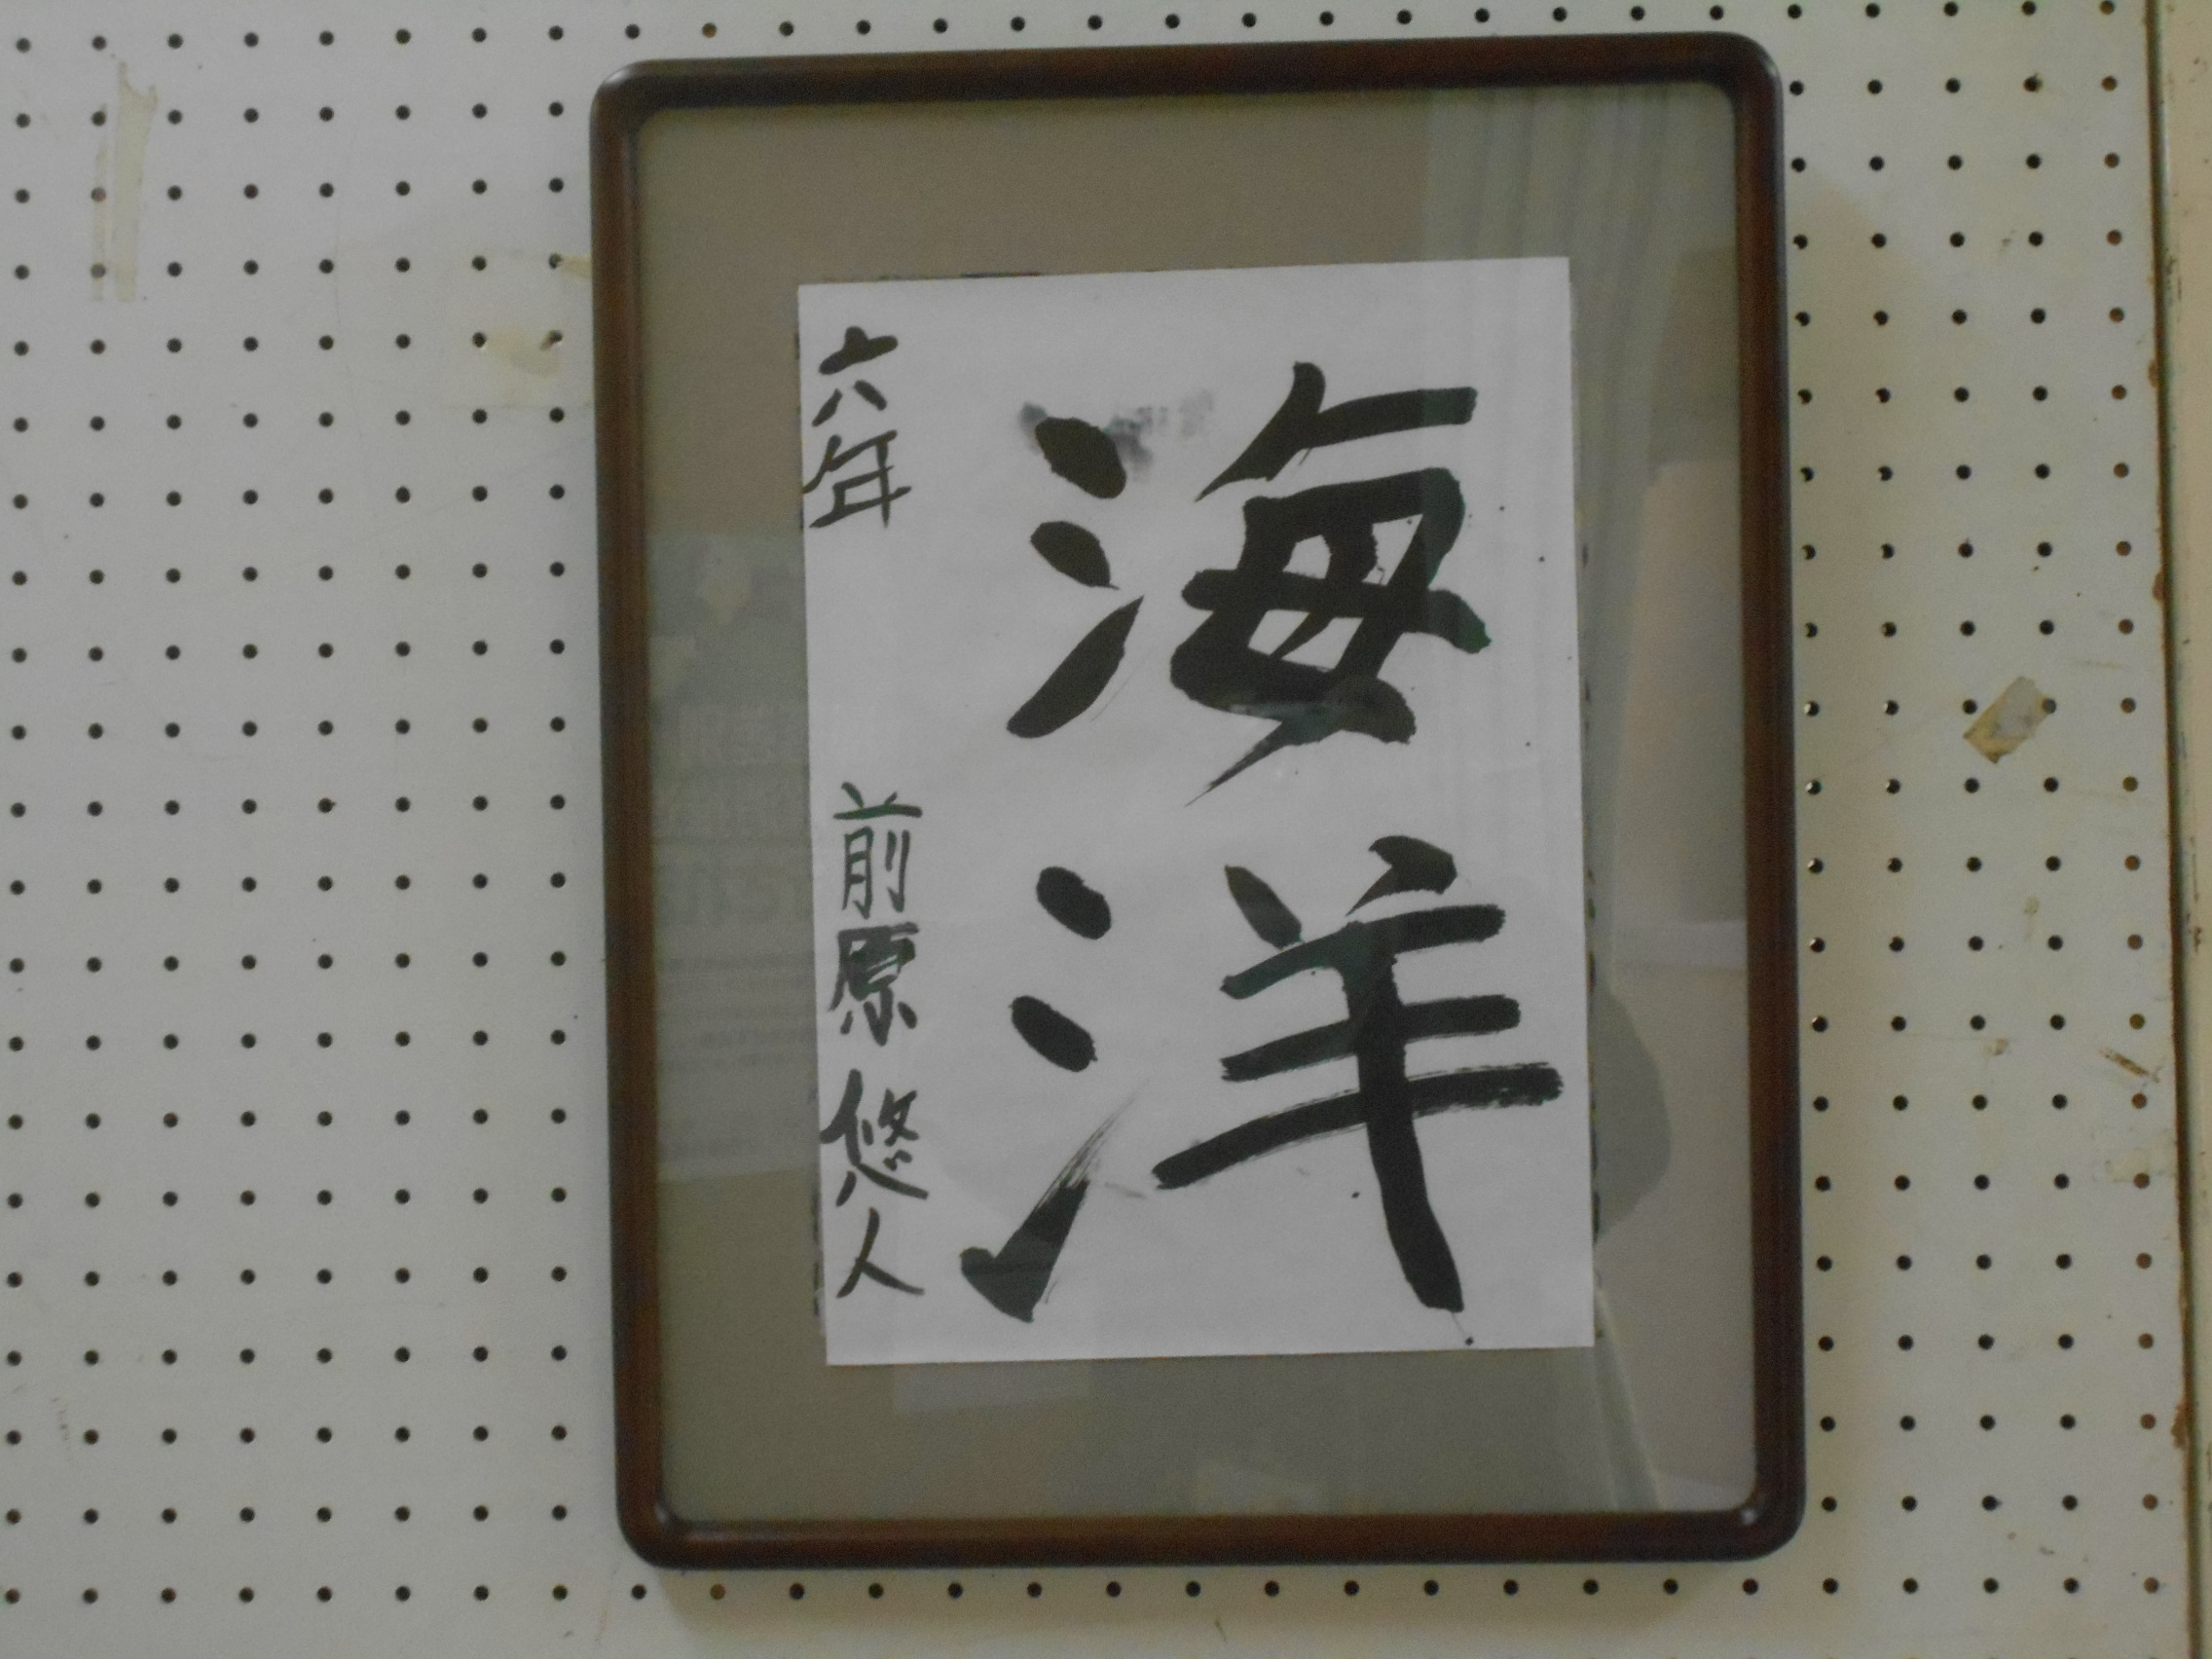 海洋
六年 前原悠人